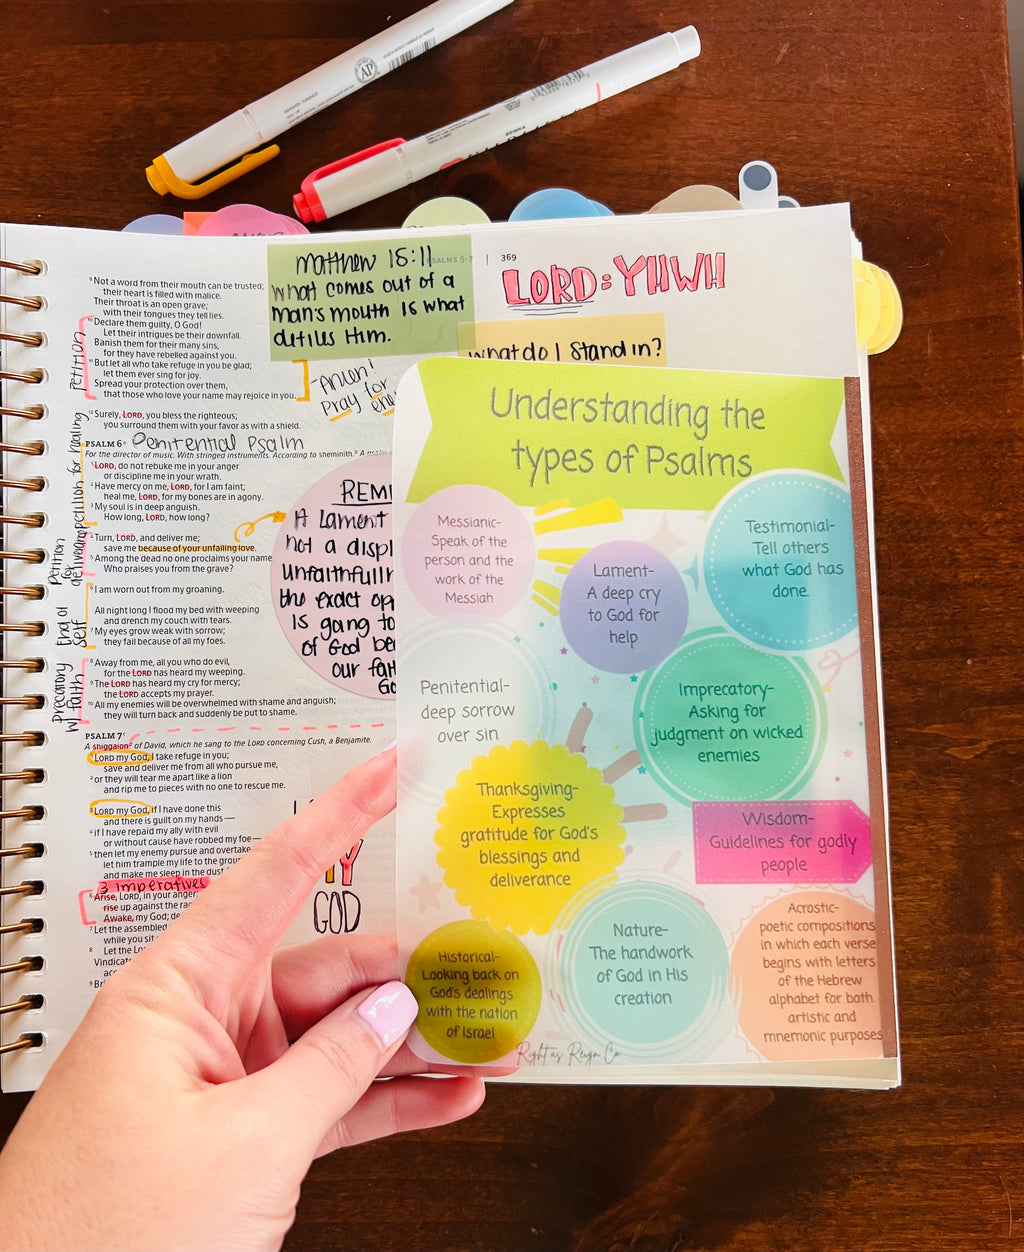 PSALMS 5-7 | 369
Matthew 15:11
what comes out of a
man's mouth is what
defiles Him.
LORD: YHWH
what do I stand in?
9 Not a word from their mouth can be trusted;
their heart is filled with malice.
Their throat is an open grave;
with their tongues they tell lies.
10 Declare them guilty, O God!
Let their intrigues be their downfall.
Banish them for their many sins,
for they have rebelled against you.
11 But let all who take refuge in you be glad;
let them ever sing for joy.
Spread your protection over them,
that those who love your name may rejoice in you.
petition
Pray for
12 Surely, LORD, you bless the righteous;
you surround them with your favor as with a shield.
PSALM 6
Penitential Psalm
For the director of music. With stringed instruments. According to sheminith.
1 LORD, do not rebuke me in your anger
or discipline me in your wrath.
2 Have mercy on me, LORD, for I am faint;
heal me, LORD, for my bones are in agony.
3 My soul is in deep anguish.
How long, LORD, how long?
petition for healing
4 Turn, LORD, and deliver me;
save me because of your unfailing love.
5 Among the dead no one proclaims your name.
Who praises you from the grave?
petition
for
6 I am worn out from my groaning.
All night long I flood my bed with weeping
and drench my couch with tears.
7 My eyes grow weak with sorrow;
they fail because of all my foes.
End of
self
8 Away from me, all you who do evil,
for the LORD has heard my weeping.
9 The LORD has heard my cry for mercy;
the LORD accepts my prayer.
10 All my enemies will be overwhelmed with shame and anguish;
they will turn back and suddenly be put to shame.
precatory
w/ faith
A Lament
not a
the exact
is going to
of God
our
PSALM 7
A shiggaion of David, which he sang to the LORD concerning Cush, a Benjamite.
1 LORD my God, I take refuge in you;
save and deliver me from all who pursue me,
2 or they will tear me apart like a lion
and rip me to pieces with no one to rescue me.
3 LORD my God, if I have done this
and there is guilt on my hands—
4 if I have repaid my ally with evil
or without cause have robbed my foe—
5 then let my enemy pursue and overtake
let him trample my life to the
and make me sleep in the dust
3 imperatives
6 Arise, LORD, in your anger;
rise up against the
Awake, my God;
7 Let the assembled
while you sit
8 Let the
GOD
Understanding the
types of Psalms
Messianic-
Speak of the
person and the
work of the
Messiah
Lament-
A deep cry
to God for
help
Testimonial-
Tell others
what God has
done
Penitential-
deep sorrow
over sin
Imprecatory-
Asking for
judgment on wicked
enemies
Thanksgiving-
Expresses
gratitude for God's
blessings and
deliverance
Wisdom-
Guidelines for godly
people
Historical-
Looking back on
God's dealings
with the nation
of Israel
Nature-
The handwork
of God in His
creation
Acrostic-
poetic compositions
in which each verse
begins with letters
of the Hebrew
alphabet for both
artistic and
mnemonic purposes
Right as Reign Co.